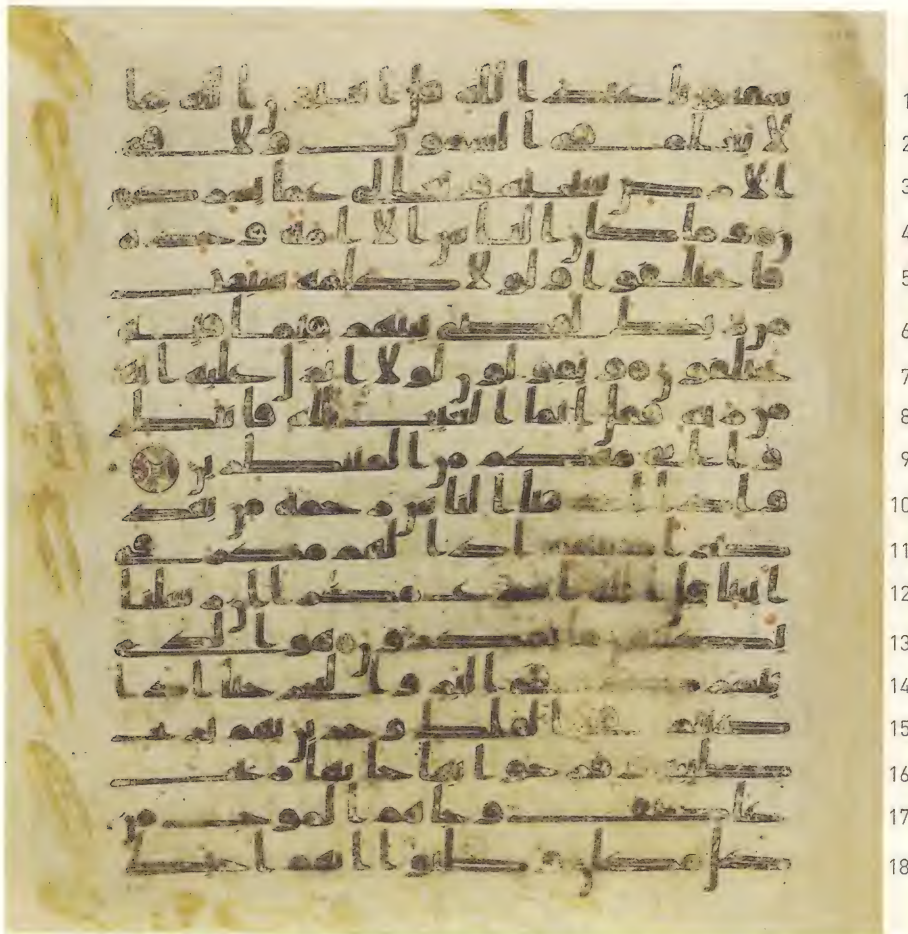 شفعونا عند الله قل اتنبون الله بما 1
لا يعلم في السموت ولا في 2
الارض سبحنه وتعلى عما يشركو 3
ن وما كان الناس الا امة وحدة 4
فاختلفوا ولولا كلمة سبقت 5
من ربك لقضي بينهم فيما فيه 6
يختلفون ويقولون لولا انزل عليه اية 7
من ربه فقل انما الغيب لله فانتظر 8
وا اني معكم من المنتظرين 9
واذا اذقنا الناس رحمة من بعد 10
ضرا مستهم اذا لهم مكر في 11
اياتنا قل الله اسرع مكرا ان رسلنا 12
يكتبون ما تمكرون هو الذي 13
يسيركم في البر والبحر حتى اذا 14
كنتم في الفلك وجرين بهم بريح 15
طيبة وفرحوا بها جاتها ريح 16
عاصف وجاهم الموج من 17
كل مكان وظنوا انهم احيط 18